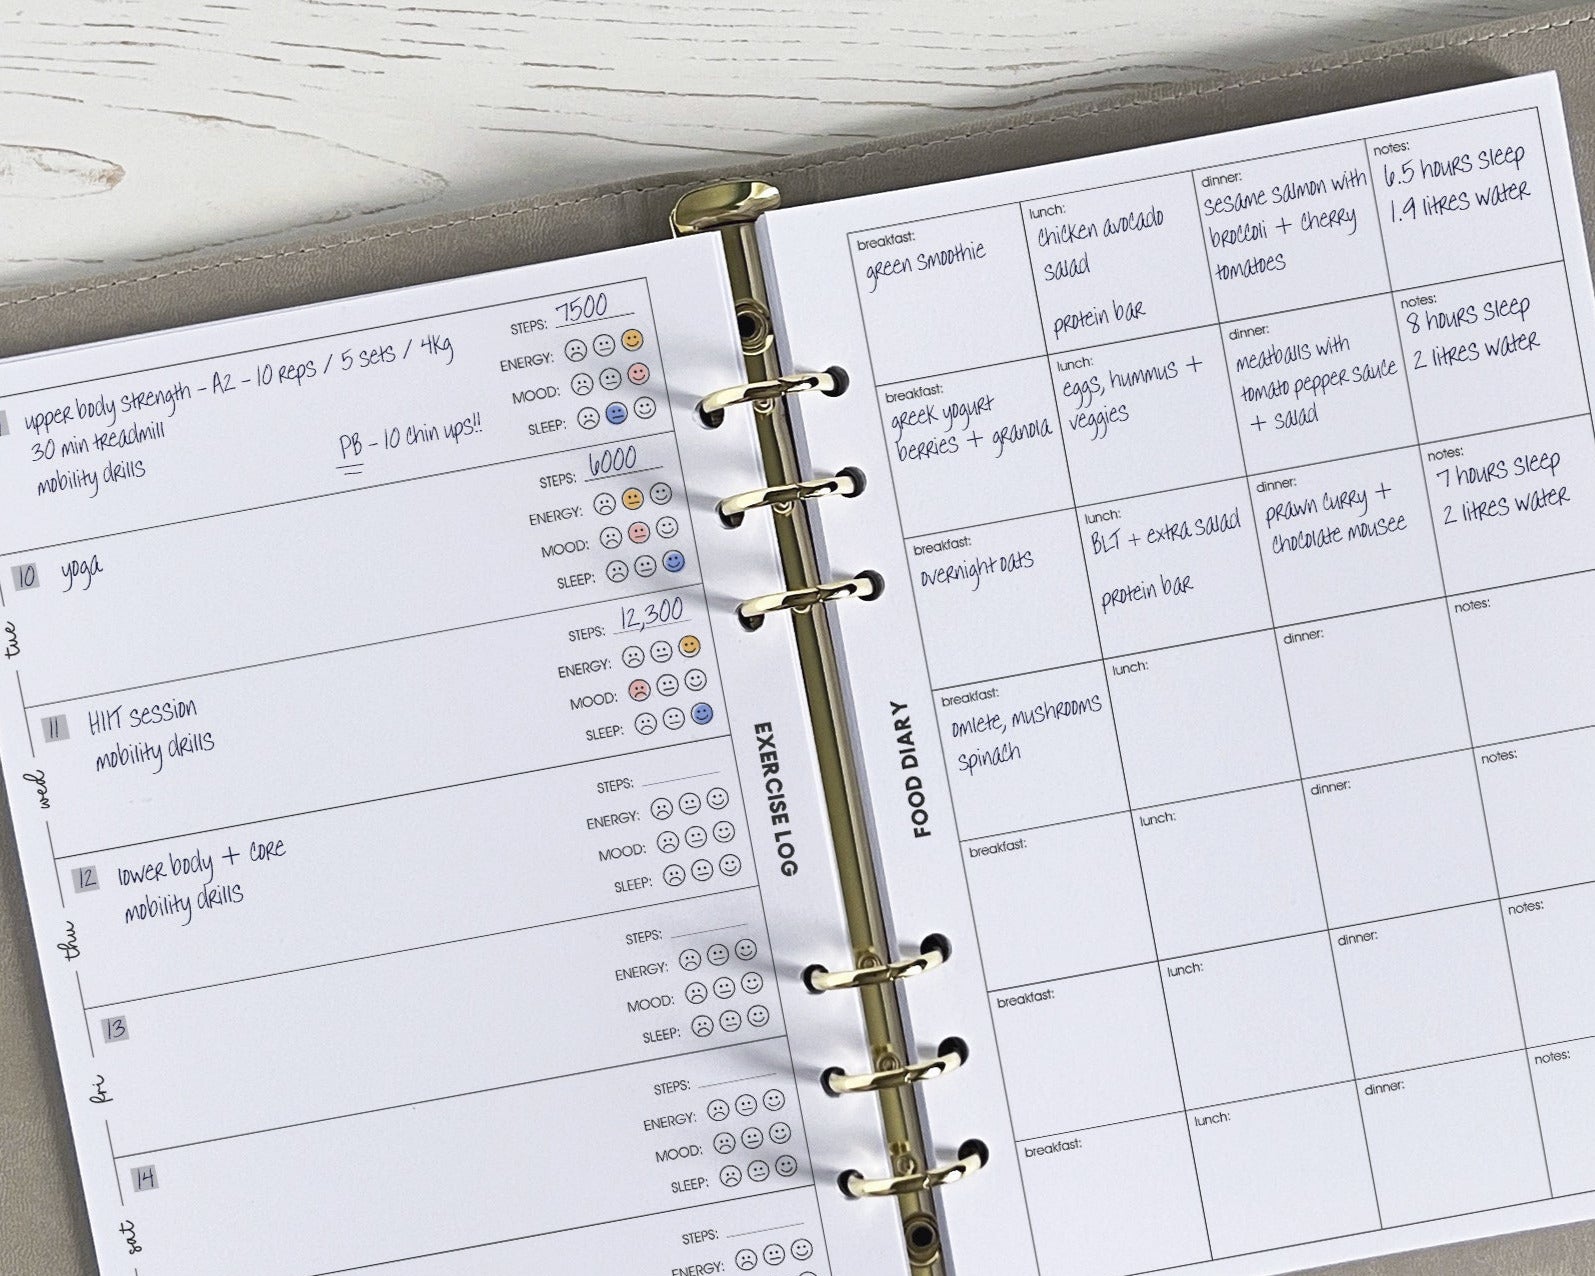 STEPS: 7500
ENERGY:
MOOD:
SLEEP:
upper body strength - A2 - 10 reps / 5 sets / 4kg
30 min treadmill
mobility drills
PB - 10 chin ups!!
tue
10
yoga
STEPS: 6000
ENERGY:
MOOD:
SLEEP:
wed
11
HIIT session
mobility drills
STEPS: 12,300
ENERGY:
MOOD:
SLEEP:
thu
12
lower body + core
mobility drills
STEPS:
ENERGY:
MOOD:
SLEEP:
fri
13
STEPS:
ENERGY:
MOOD:
SLEEP:
sat
14
STEPS:
ENERGY:
MOOD:
SLEEP:
STEPS:
ENERGY:
EXERCISE LOG
FOOD DIARY
breakfast:
green smoothie
lunch:
chicken avocado
salad
protein bar
dinner:
sesame salmon with
broccoli + cherry
tomatoes
notes:
6.5 hours sleep
1.9 litres water
breakfast:
greek yogurt
berries + granola
lunch:
eggs, hummus +
veggies
dinner:
meatballs with
tomato pepper sauce
+ salad
notes:
8 hours sleep
2 litres water
breakfast:
overnight oats
lunch:
BLT + extra salad
protein bar
dinner:
prawn curry +
chocolate mousee
notes:
7 hours sleep
2 litres water
breakfast:
omlete, mushrooms
spinach
lunch:
dinner:
notes:
breakfast:
lunch:
dinner:
notes:
breakfast:
lunch:
dinner:
notes:
breakfast:
lunch:
dinner:
notes: